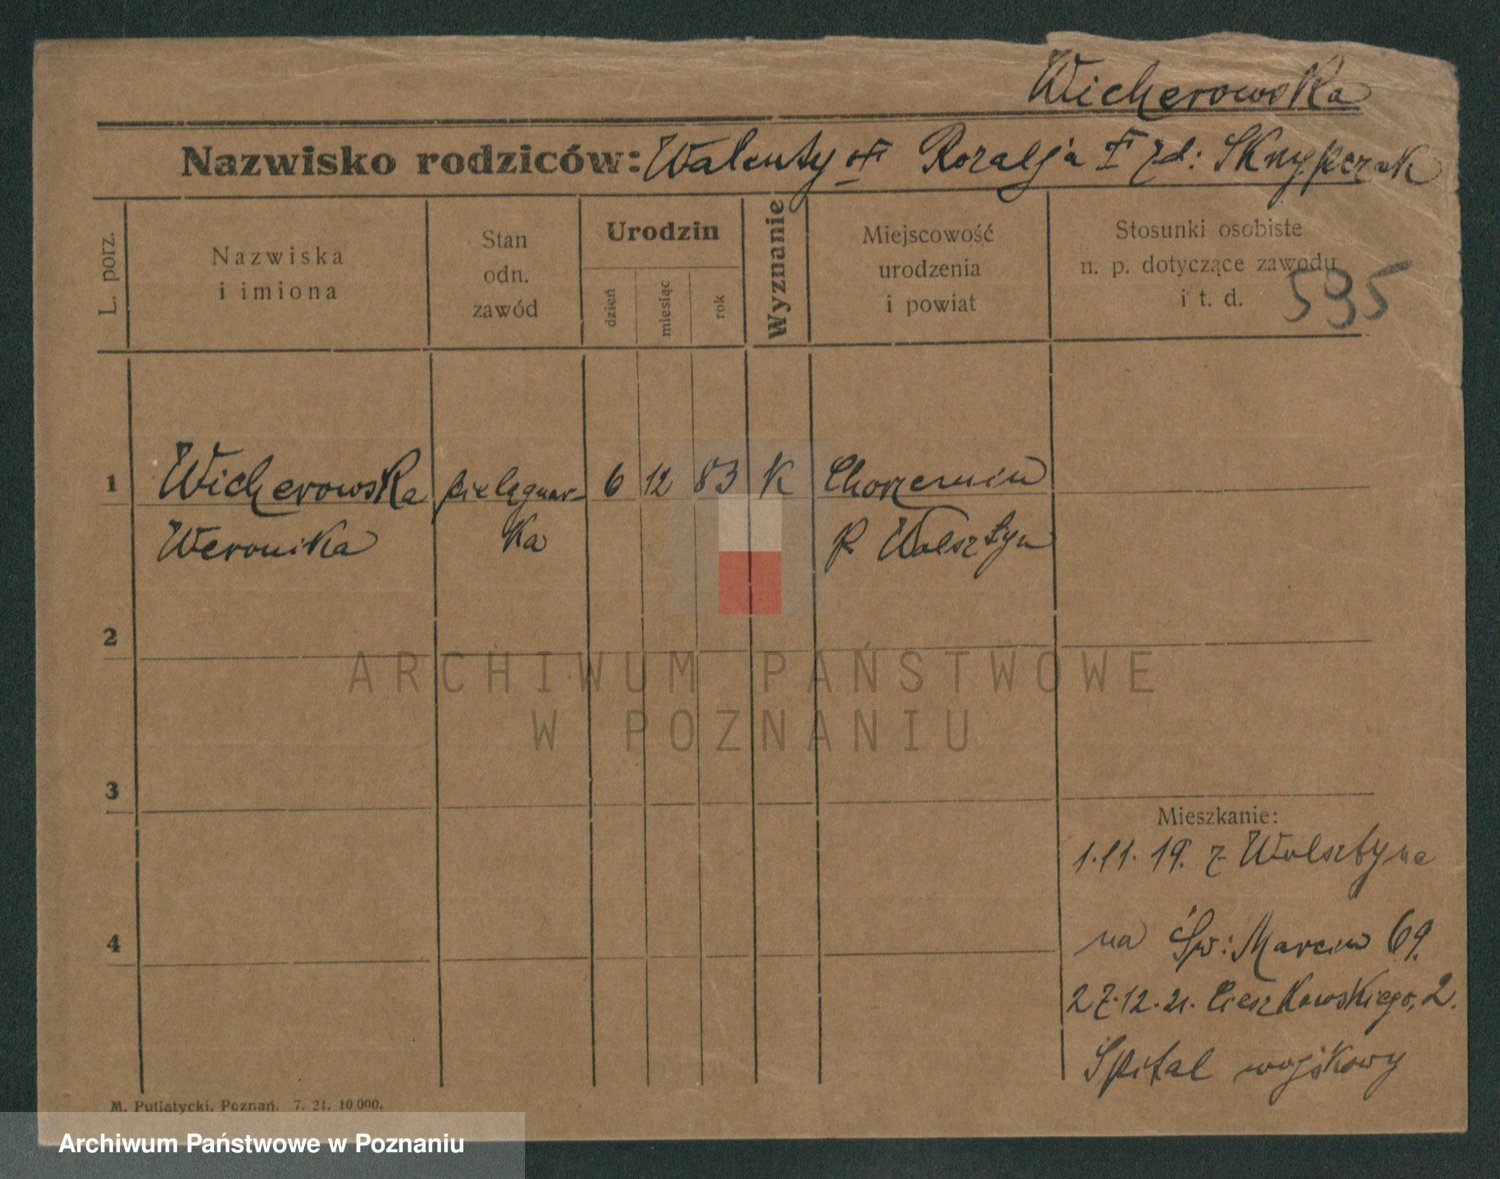 Wicherowska
Nazwisko rodziców: Walenty Rozalja zd: Sknypczak
L. porz.
Nazwiska
i imiona
Stan
odn.
zawód
Urodzin
dzień
miesiąc
rok
Wyznanie
Miejscowość
urodzenia
i powiat
Stosunki osobiste
n. p. dotyczące zawodu
i t. d.
595
1 Wicherowska pielęgniar- 6 12 83 K Chorzemin
Weronika ka p. Wolsztyn
2
3
4
Mieszkanie:
1.11.19. z Wolsztyna
na Św: Marcin 69.
27.12.21. Cieszkowskiego, 2.
Śpital wojskowy
M. Putiatycki, Poznań. 7. 21. 10 000.
ARCHIWUM PAŃSTWOWE
W POZNANIU
Archiwum Państwowe w Poznaniu